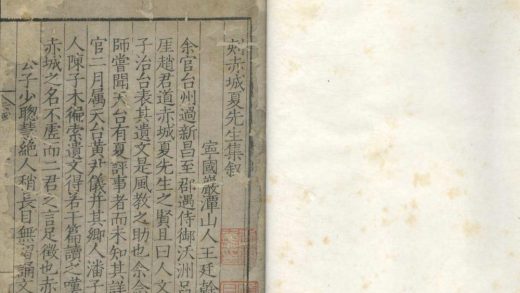 刻赤城夏先生集叙
寧國嚴潭山人王廷幹
余官台州過新昌至郡遇侍御沃洲呂
厓趙君道赤城夏先生之賢且曰人文
子治台表其遺文是風教之助也余念
師嘗聞天台有夏評事者而未知其詳
官二月属天台黄尹儀并其鄉人潘子
人陳子木徧索遺文得若干篇讀之嘆
赤城之名不虛而二君之言足徵也赤
公子少聰慧絶人稍長目無習誦文